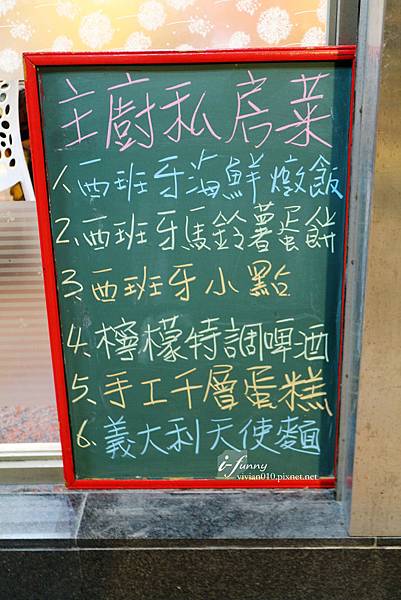 主廚私房菜
1.西班牙海鮮燉飯
2.西班牙馬鈴薯蛋餅
3.西班牙小點
4.檸檬特調啤酒
5.手工千層蛋糕
6.義大利天使麵
i-funny
vivian010.pixnet.net